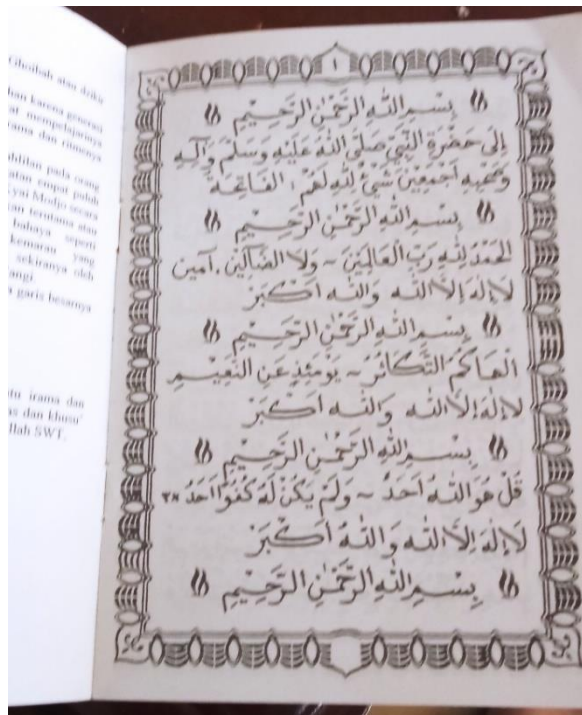 Ghoibah atau dzikir
han karena generasi
at mempelajarinya
ama dan ritmenya
ahlilan pada orang
atan empat puluh
yai Modjo secara
an terutama atau
bahaya seperti
kemarau yang
sekiranya oleh
angi.
a garis besarnya
tu irama dan
as dan khusu'
llah SWT.
١
بِسْمِ اللهِ الرَّحْمٰنِ الرَّحِيْمِ
إِلَى حَضْرَةِ النَّبِيِّ صَلَّى اللهُ عَلَيْهِ وَسَلَّمَ وَآلِهِ
وَصَحْبِهِ أَجْمَعِيْنَ شَيْئٌ لِلّٰهِ لَهُمْ : الفَاتِحَة
بِسْمِ اللهِ الرَّحْمٰنِ الرَّحِيْمِ
الحَمْدُ لِلّٰهِ رَبِّ العَالَمِيْنَ ~ وَلَا الضَّالِّيْنَ . آمين
لَا إِلٰهَ إِلَّا اللهُ وَاللهُ أَكْبَرُ
بِسْمِ اللهِ الرَّحْمٰنِ الرَّحِيْمِ
أَلْهَاكُمُ التَّكَاثُرُ ~ يَوْمَئِذٍ عَنِ النَّعِيْمِ
لَا إِلٰهَ إِلَّا اللهُ وَاللهُ أَكْبَرُ
بِسْمِ اللهِ الرَّحْمٰنِ الرَّحِيْمِ
قُلْ هُوَ اللهُ أَحَدٌ ~ وَلَمْ يَكُنْ لَهُ كُفُوًا أَحَدٌ ×٣
لَا إِلٰهَ إِلَّا اللهُ وَاللهُ أَكْبَرُ
بِسْمِ اللهِ الرَّحْمٰنِ الرَّحِيْمِ